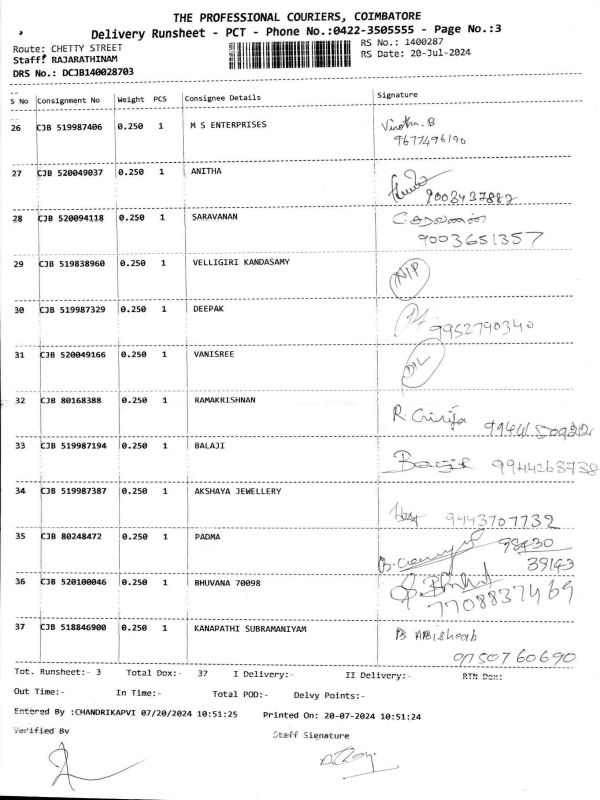 THE PROFESSIONAL COURIERS, COIMBATORE
Delivery Runsheet - PCT - Phone No.:0422-3505555 - Page No.:3
Route: CHETTY STREET RS No.: 1400287
Staff: RAJARATHINAM RS Date: 20-Jul-2024
DRS No.: DCJB140028703
S No Consignment No Weight PCS Consignee Details Signature
26 CJB 519987406 0.250 1 M S ENTERPRISES
9677496190
27 CJB 520049037 0.250 1 ANITHA
9003437882
28 CJB 520094118 0.250 1 SARAVANAN C. சரவணன்
9003651357
29 CJB 519838960 0.250 1 VELLIGIRI KANDASAMY N/P
30 CJB 519987329 0.250 1 DEEPAK
9952790340
31 CJB 520049166 0.250 1 VANISREE D/L
32 CJB 80168388 0.250 1 RAMAKRISHNAN R Girija
33 CJB 519987194 0.250 1 BALAJI 9944263738
34 CJB 519987387 0.250 1 AKSHAYA JEWELLERY
9443707732
35 CJB 80248472 0.250 1 PADMA 98430
39143
36 CJB 520100046 0.250 1 BHUVANA 70098
7708837469
37 CJB 518846900 0.250 1 KANAPATHI SUBRAMANIYAM B ABisheab
9750760690
Tot. Runsheet:- 3 Total Dox:- 37 I Delivery:- II Delivery:- RTN Dox:
Out Time:- In Time:- Total POD:- Delvy Points:-
Entered By :CHANDRIKAPVI 07/20/2024 10:51:25 Printed On: 20-07-2024 10:51:24
Verified By Staff Signature